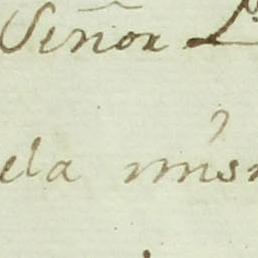 Señor
ela mis